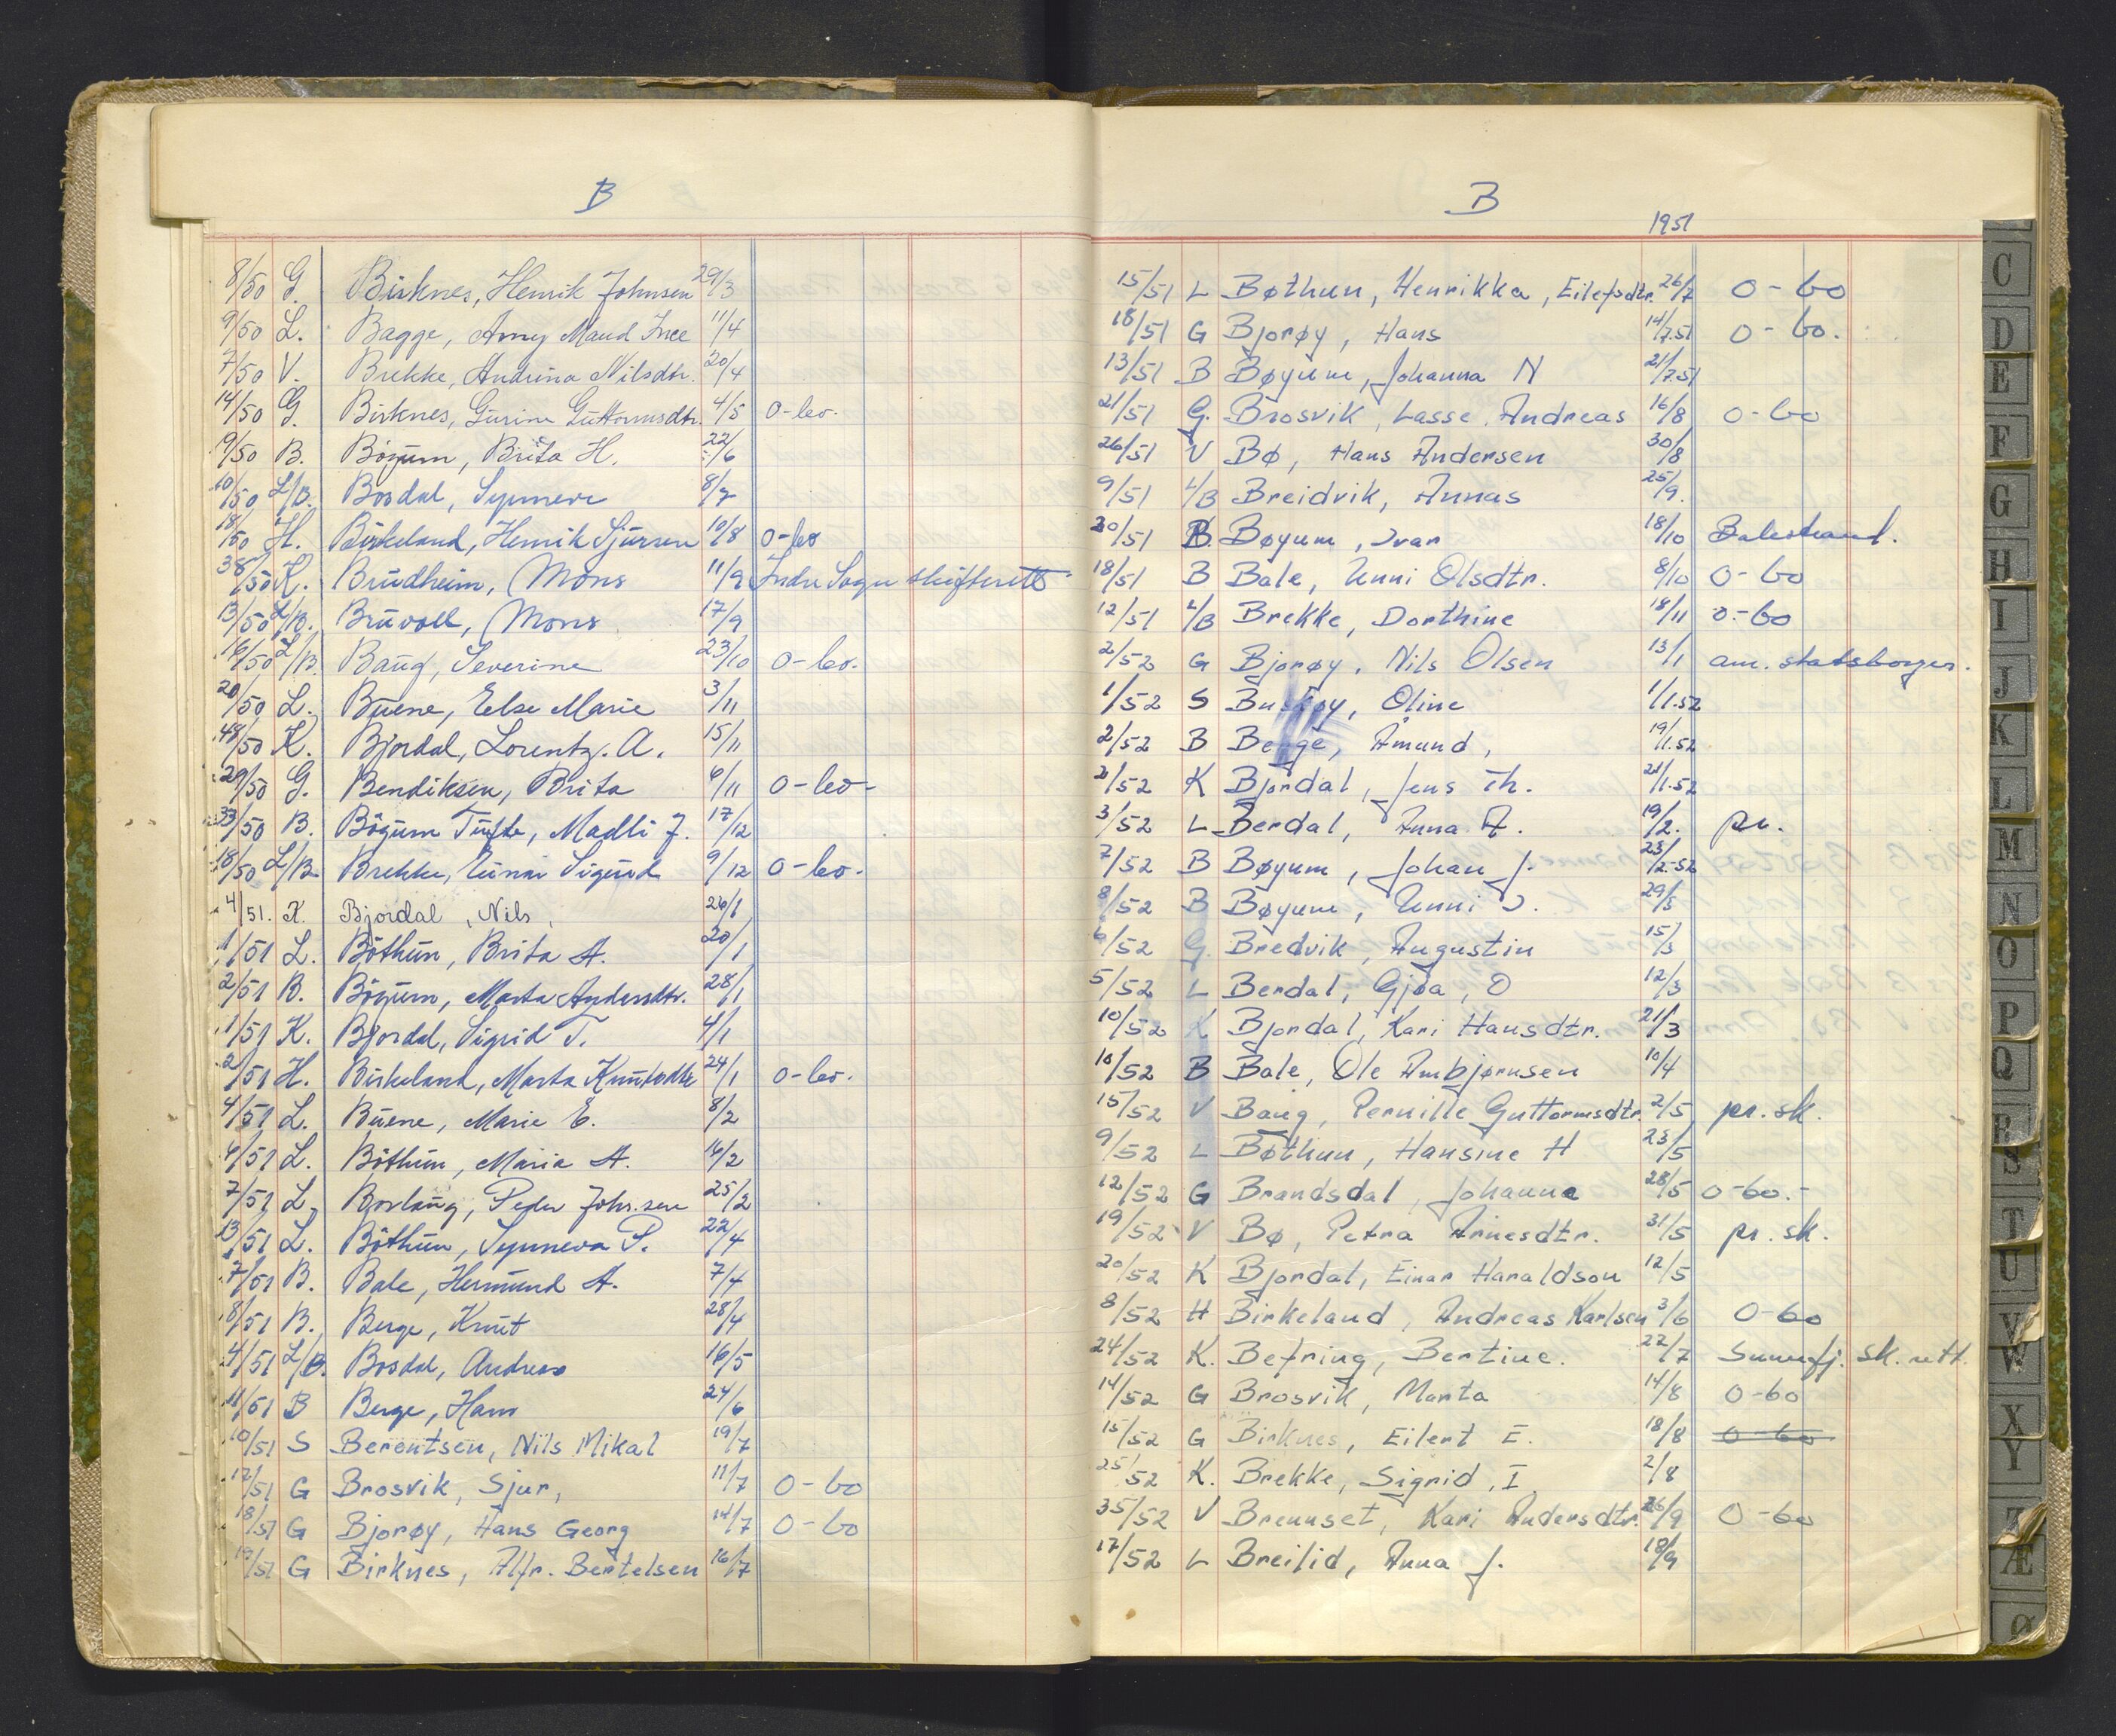 B
8/50 G. Birknes, Henrik Johnsen 29/3
9/50 L. Bagge, Amy Maud Ince 11/4
7/50 V. Brekke, Andrina Nilsdtr. 20/4
14/50 G. Birknes, Gurine Guttormsdtr. 4/5 0-bo.
9/50 B. Bøyum, Brita H. 22/6
10/50 L/B. Bosdal, Synneve 8/7
18/50 H. Birkeland, Henrik Sjursen 10/8 0-bo
38/50 K. Brudheim, Mons 11/9 Indre Sogn skifterett
13/50 L/B. Bruvoll, Mons 17/9
16/50 L/B. Baug, Severine 23/10 0-bo.
20/50 L. Buene, Else Marie 3/11
48/50 K. Bjordal, Lorentz. A. 15/11
29/50 G. Bendiksen, Brita 6/11 0-bo-
33/50 B. Bøyum Tufte, Madli J. 17/12
18/50 L/B. Brekke, Einar Sigurd 9/12 0-bo.
4/51. K. Bjordal, Nils, 26/1
1/51 L. Bøthun, Brita A. 20/1
2/51 B. Bøyum, Marta Andersdtr. 28/1
1/51 K. Bjordal, Sigrid T. 4/1
2/51 H. Birkeland, Marta Knutsdtr 24/1 0-bo.
4/51 L. Buene, Marie E. 8/2
6/51 L. Bøthun, Maria A. 14/2
7/51 L. Borlaug, Peder Johs.sen 25/2
13/51 L. Bøthun, Synneva P. 22/4
7/51 B. Bale, Hermund A. 7/4
8/51 B. Berge, Knut 28/4
4/51 L/B. Bosdal, Andreas 16/5
11/51 B Berge, Hans 24/6
10/51 S Berentsen, Nils Mikal 19/7
17/51 G Brosvik, Sjur, 11/7 0-bo
18/51 G Bjorøy, Hans Georg 14/7 0-bo
19/51 G Birknes, Alfr. Bertelsen 16/7
B
1951
15/51 L Bøthun, Henrikka, Eilefsdtr. 26/7 0-bo
18/51 G Bjorøy, Hans 14/7.51 0-bo.
13/51 B Bøyum, Johanna N 21/7.51
21/51 G. Brosvik, Lasse Andreas 16/8 0-bo
26/51 V Bø, Hans Andersen 30/8
9/51 L/B Breidvik, Annas 25/9.
20/51 B. Bøyum, Ivar 18/10 Balestrand.
18/51 B Bale, Unni Olsdtr. 8/10 0-bo
12/51 L/B Brekke, Dorthine 18/11 0-bo
2/52 G Bjorøy, Nils Olsen 13/1 am. statsborger.
1/52 S Buskøy, Oline 1/1.52
2/52 B Berge, Åmund, 19/1.52
2/52 K Bjordal, Jens Th. 21/1.52
3/52 L Berdal, Anna A. 19/2. pr.
7/52 B Bøyum, Johan J. 23/2.52
8/52 B Bøyum, Unni I. 29/3
6/52 G. Bredvik, Augustin 15/3
5/52 L Berdal, Gjøa, O 12/3
10/52 K Bjordal, Kari Hansdtr. 21/3
10/52 B Bale, Ole Ambjørnsen 10/4
15/52 V Baug, Pernille Guttormsdtr. 2/5 pr. sk.
9/52 L Bøthun, Hansine H 23/5
12/52 G Brandsdal, Johanne 28/5 0-bo.-
19/52 V Bø, Petra Arnesdtr. 31/5 pr. sk.
20/52 K Bjordal, Einar Haraldson 12/5
8/52 H Birkeland, Andreas Karlsen 3/6 0-bo
24/52 K. Befring, Bertine. 22/7 Sunnfj. sk. rett.
14/52 G Brosvik, Marta 14/8 0-bo
15/52 G Birknes, Eilert E. 18/8 0-bo
25/52 K. Brekke, Sigrid, I 2/8
35/52 V Brennset, Kari Andersdtr. 26/9 0-bo
17/52 L Breilid, Anna J. 18/9
C
D
E
F
G
H
I
J
K
L
M
N
O
P
Q
R
S
T
U
V
W
X
Y
Z
Æ
Ø